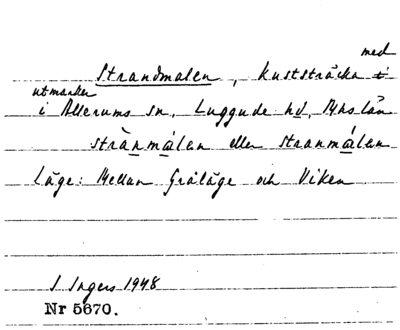 Strandmalen, kuststräcka med
utmarker
i Allerums sn, Luggude hd, Mhs län
strànmálan eller stranmálan
Läge: Mellan Gråläge och Viken
I Ingers 1948
Nr 5670.